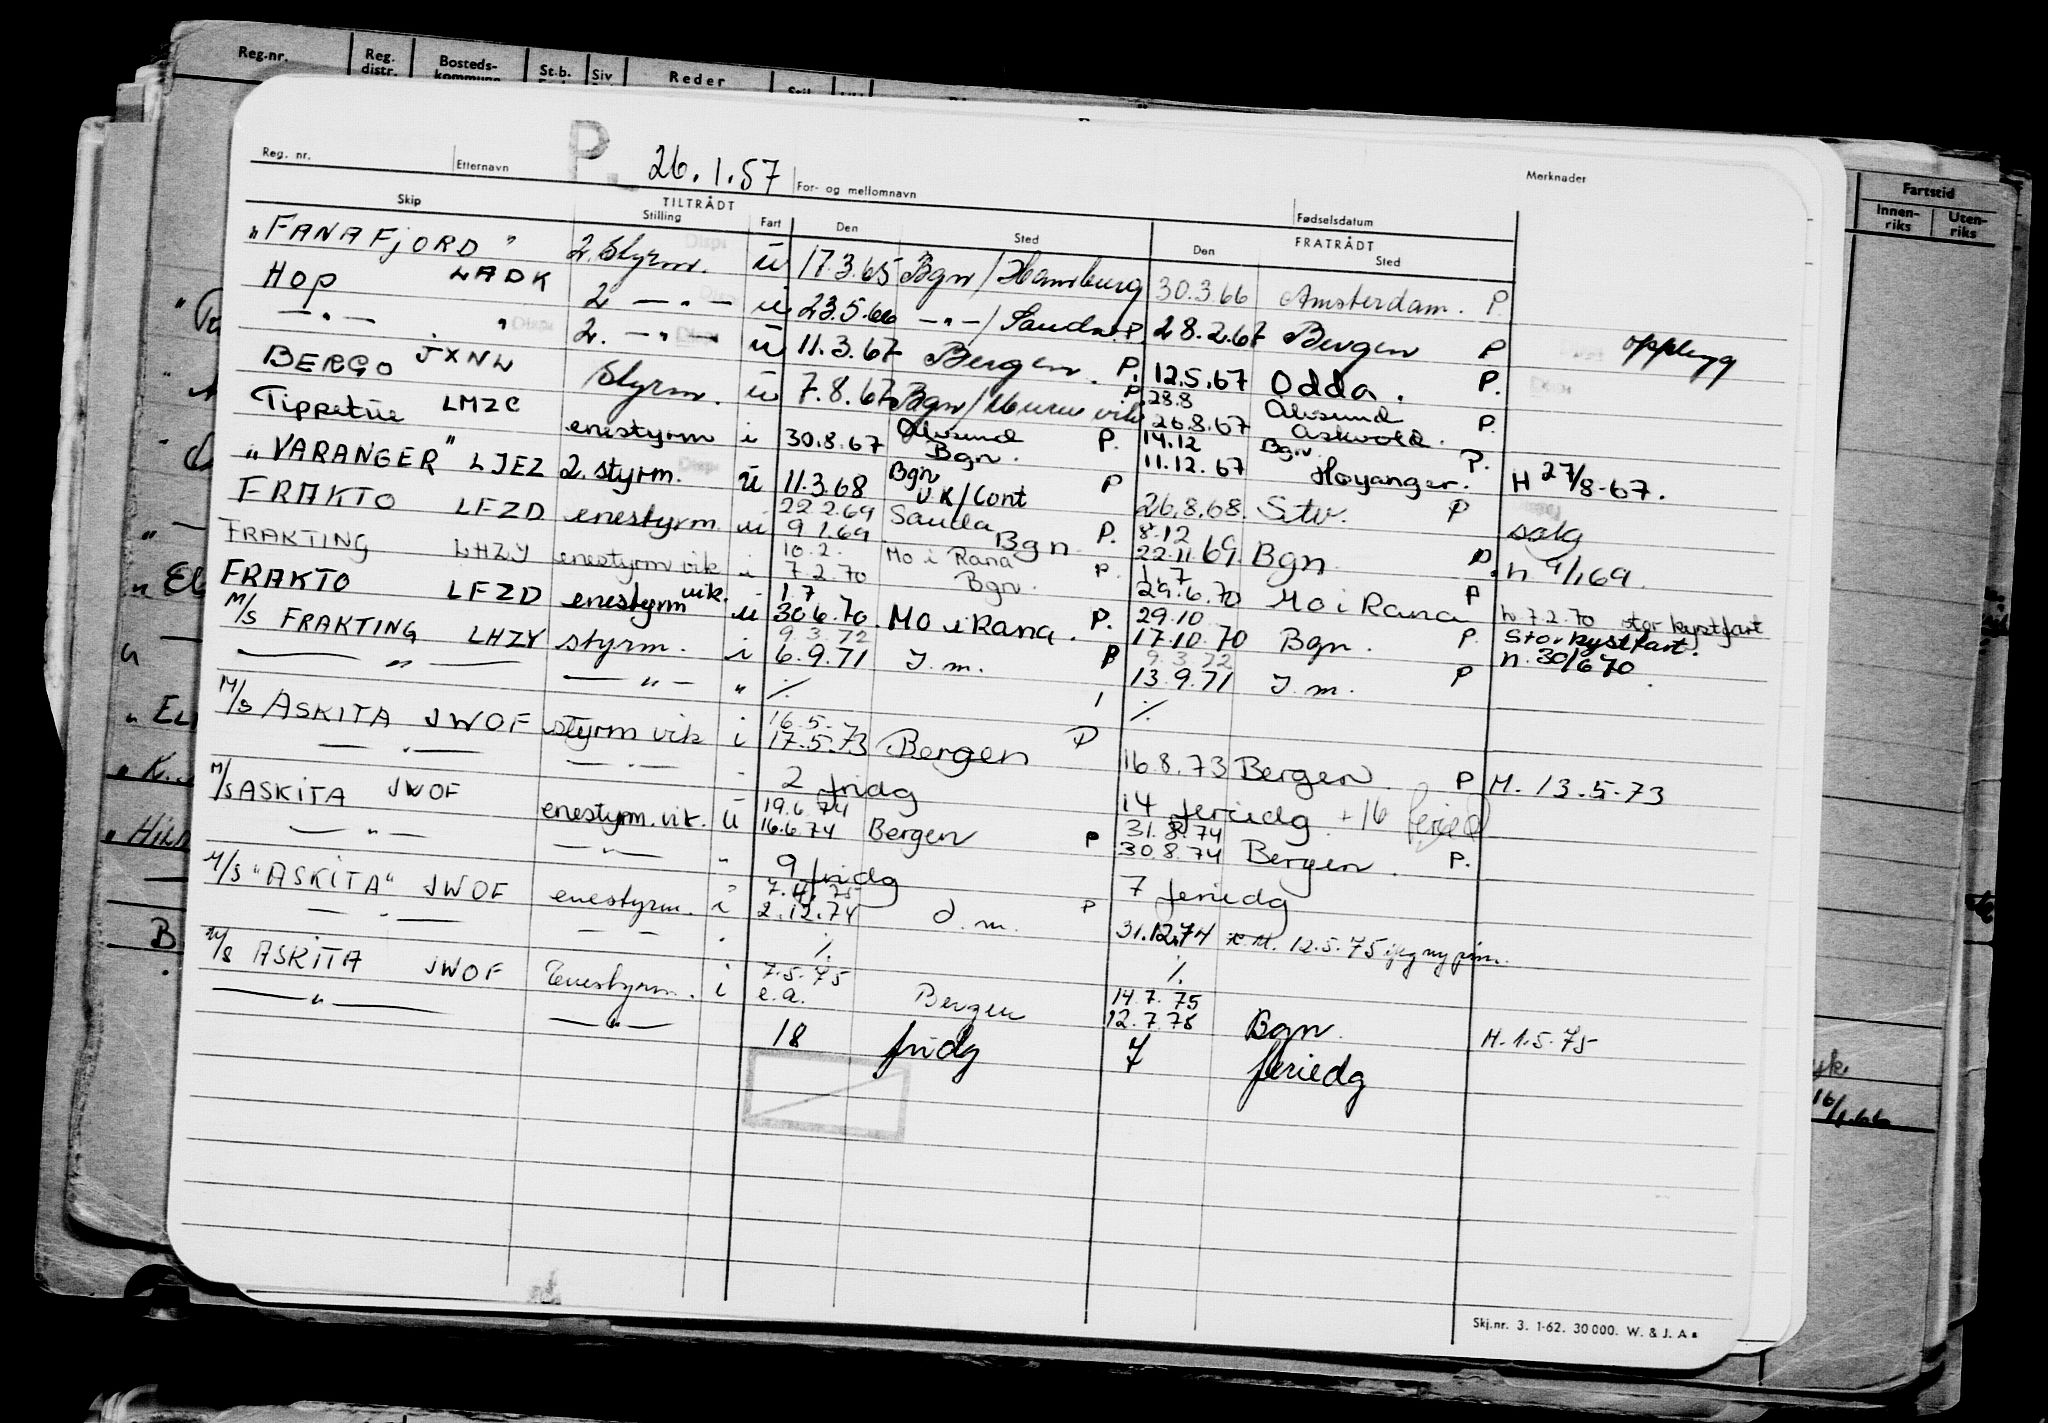 Reg.nr. Reg. distr. Bosteds- kommune St.b. Siv Reder
P 26.1.57
Reg. nr. Etternavn For- og mellomnavn Fødselsdatum Merknader
TILTRÅDT FRATRÅDT
Skip Stilling Fart Den Sted Den Sted
Fartstid
Innen- riks Uten- riks
"FANAFJORD" LADK 2. Styrm. u 17.3.65 Bgn/Hamburg 30.3.66 Amsterdam. P.
HOP 2 —"— u 23.5.66 —"—/Sauda P. 28.2.67 Bergen P opplegg
—"— " 2. —"— u 11.3.67 Bergen. P. 12.5.67 Odda. P.
BERGO JXNL Styrm. u 7.8.67 Bgn/ P. 28.8 26.8.67 Ålvsund Askvold. P.
Tippetue LMZC enestyrm i 30.8.67 Ålvsund Bgn. P. 14.12 11.12.67 Bgn. Høyanger. P. H 27/8-67.
"VARANGER" LJEZ 2. styrm. u 11.3.68 Bgn UK/Cont P 26.8.68. Stv. P salg
FRAKTO LFZD enestyrm. u 22.2.69 9.1.69 Sauda Bgn P. 8.12 22.11.69 Bgn P. n 9/1 69.
FRAKTING LHZY enestyrm vik i 10.2. 7.2.70 Mo i Rana Bgn. P. 1.7 29.6.70 Mo i Rana P h 7.2.70 stor kystfart
FRAKTO LFZD enestyrm vik. u 1.7 30.6.70 Mo i Rana. P. 29.10 17.10.70 Bgn. P. Stor kystfart. n. 30/6 70
M/S FRAKTING LHZY styrm. i 9.3.72 6.9.71 J.m. P 9.3.72 13.9.71 J.m. P
—"— —"— " ·/. ·/.
M/S ASKITA JWOF styrm vik i 16.5- 17.5.73 Bergen P 16.8.73 Bergen P M. 13.5-73
—"— —"— 2 fridg 14 feriedg + 16
M/S ASKITA JWOF enestyrm.vik. u 19.6.74 16.6.74 Bergen P 31.8.74 30.8.74 Bergen. P.
—"— —"— " 9 fridg 7 feriedg
M/S "ASKITA" JWOF enestyrm. i 7.4.75 2.12.74 J.m. P 31.12.74 M. 12.5.75
—"— — — ·/. ·/.
M/S ASKITA JWOF Enestyrm. i 7.5.75 e.a. Bergen 14.7.75 12.7.75 Bgn. H. 1.5.75
—"— —"— 18 fridg 7 feriedg
16/1.66
Skj.nr. 3. 1-62. 30 000. W. & J. A s